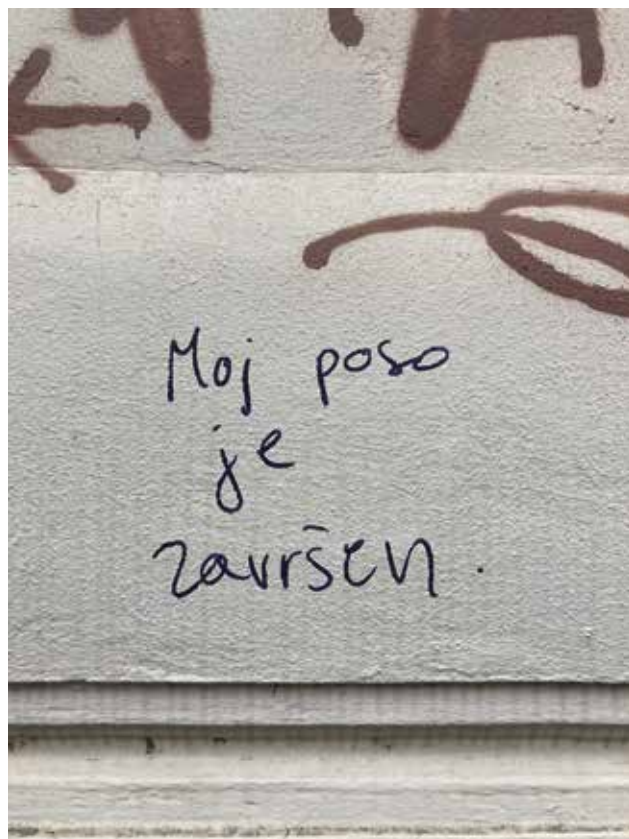 Moj poso
je
završen.